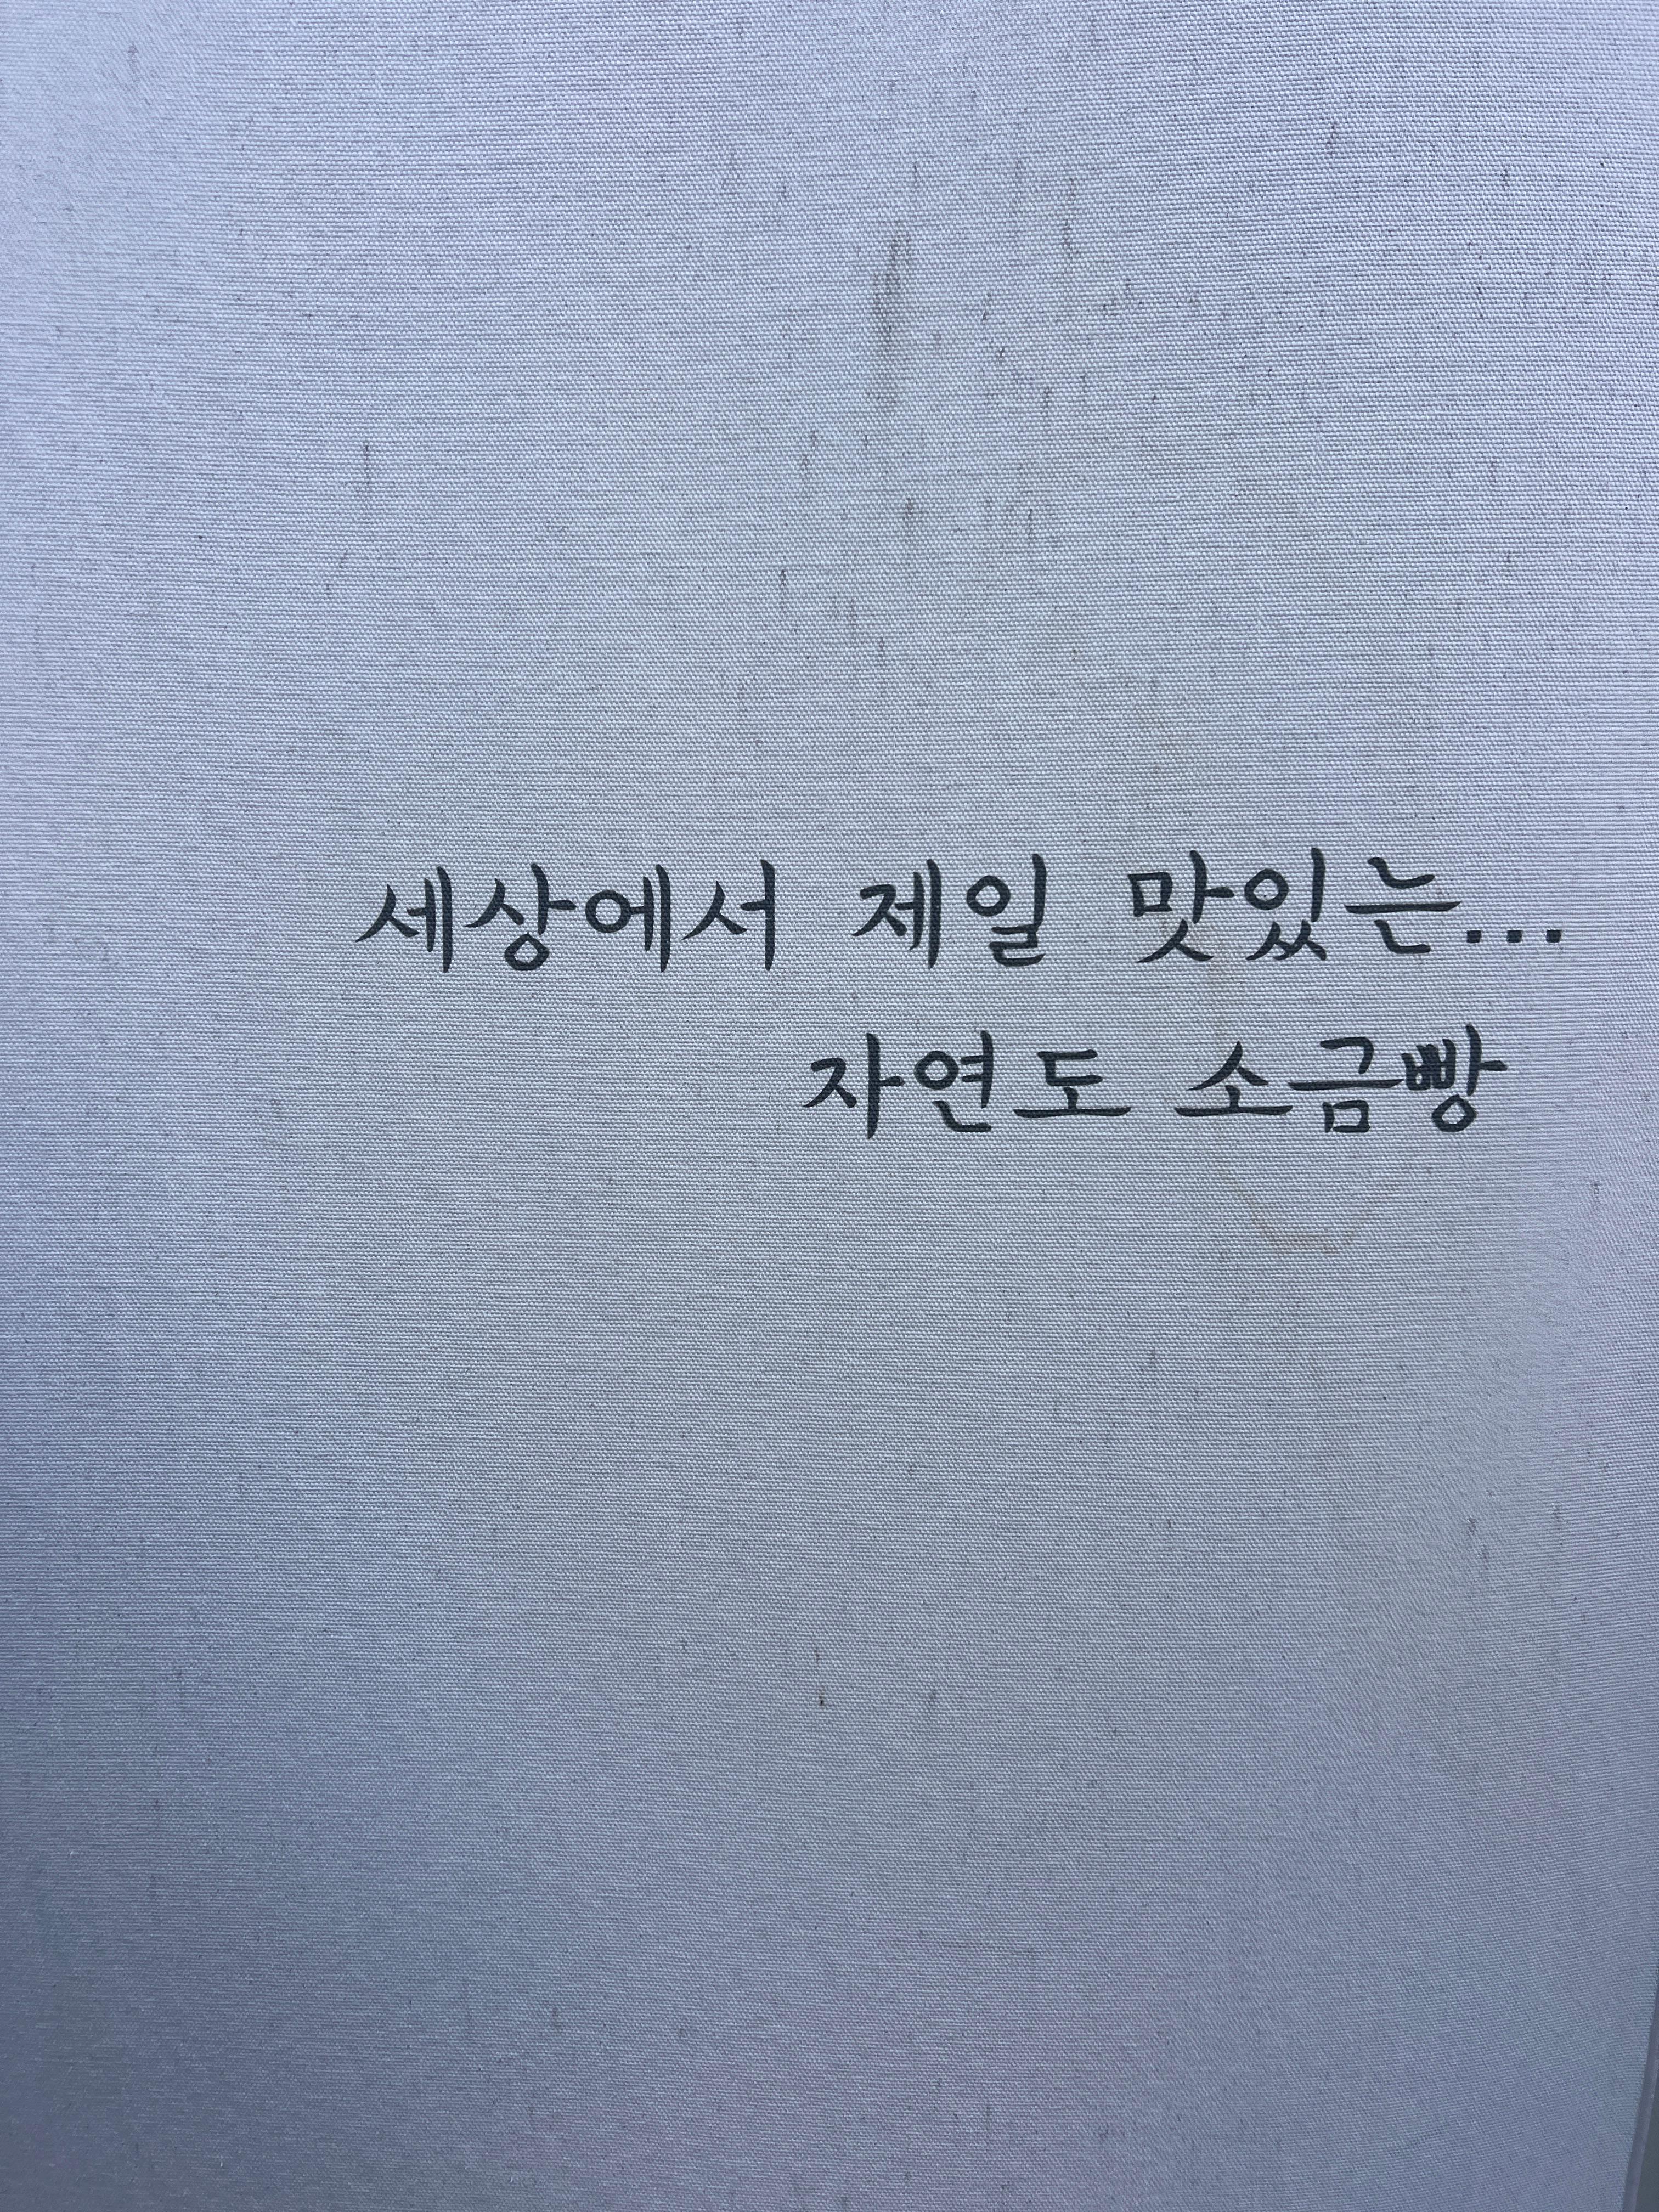 세상에서 제일 맛있는...
자연도 소금빵